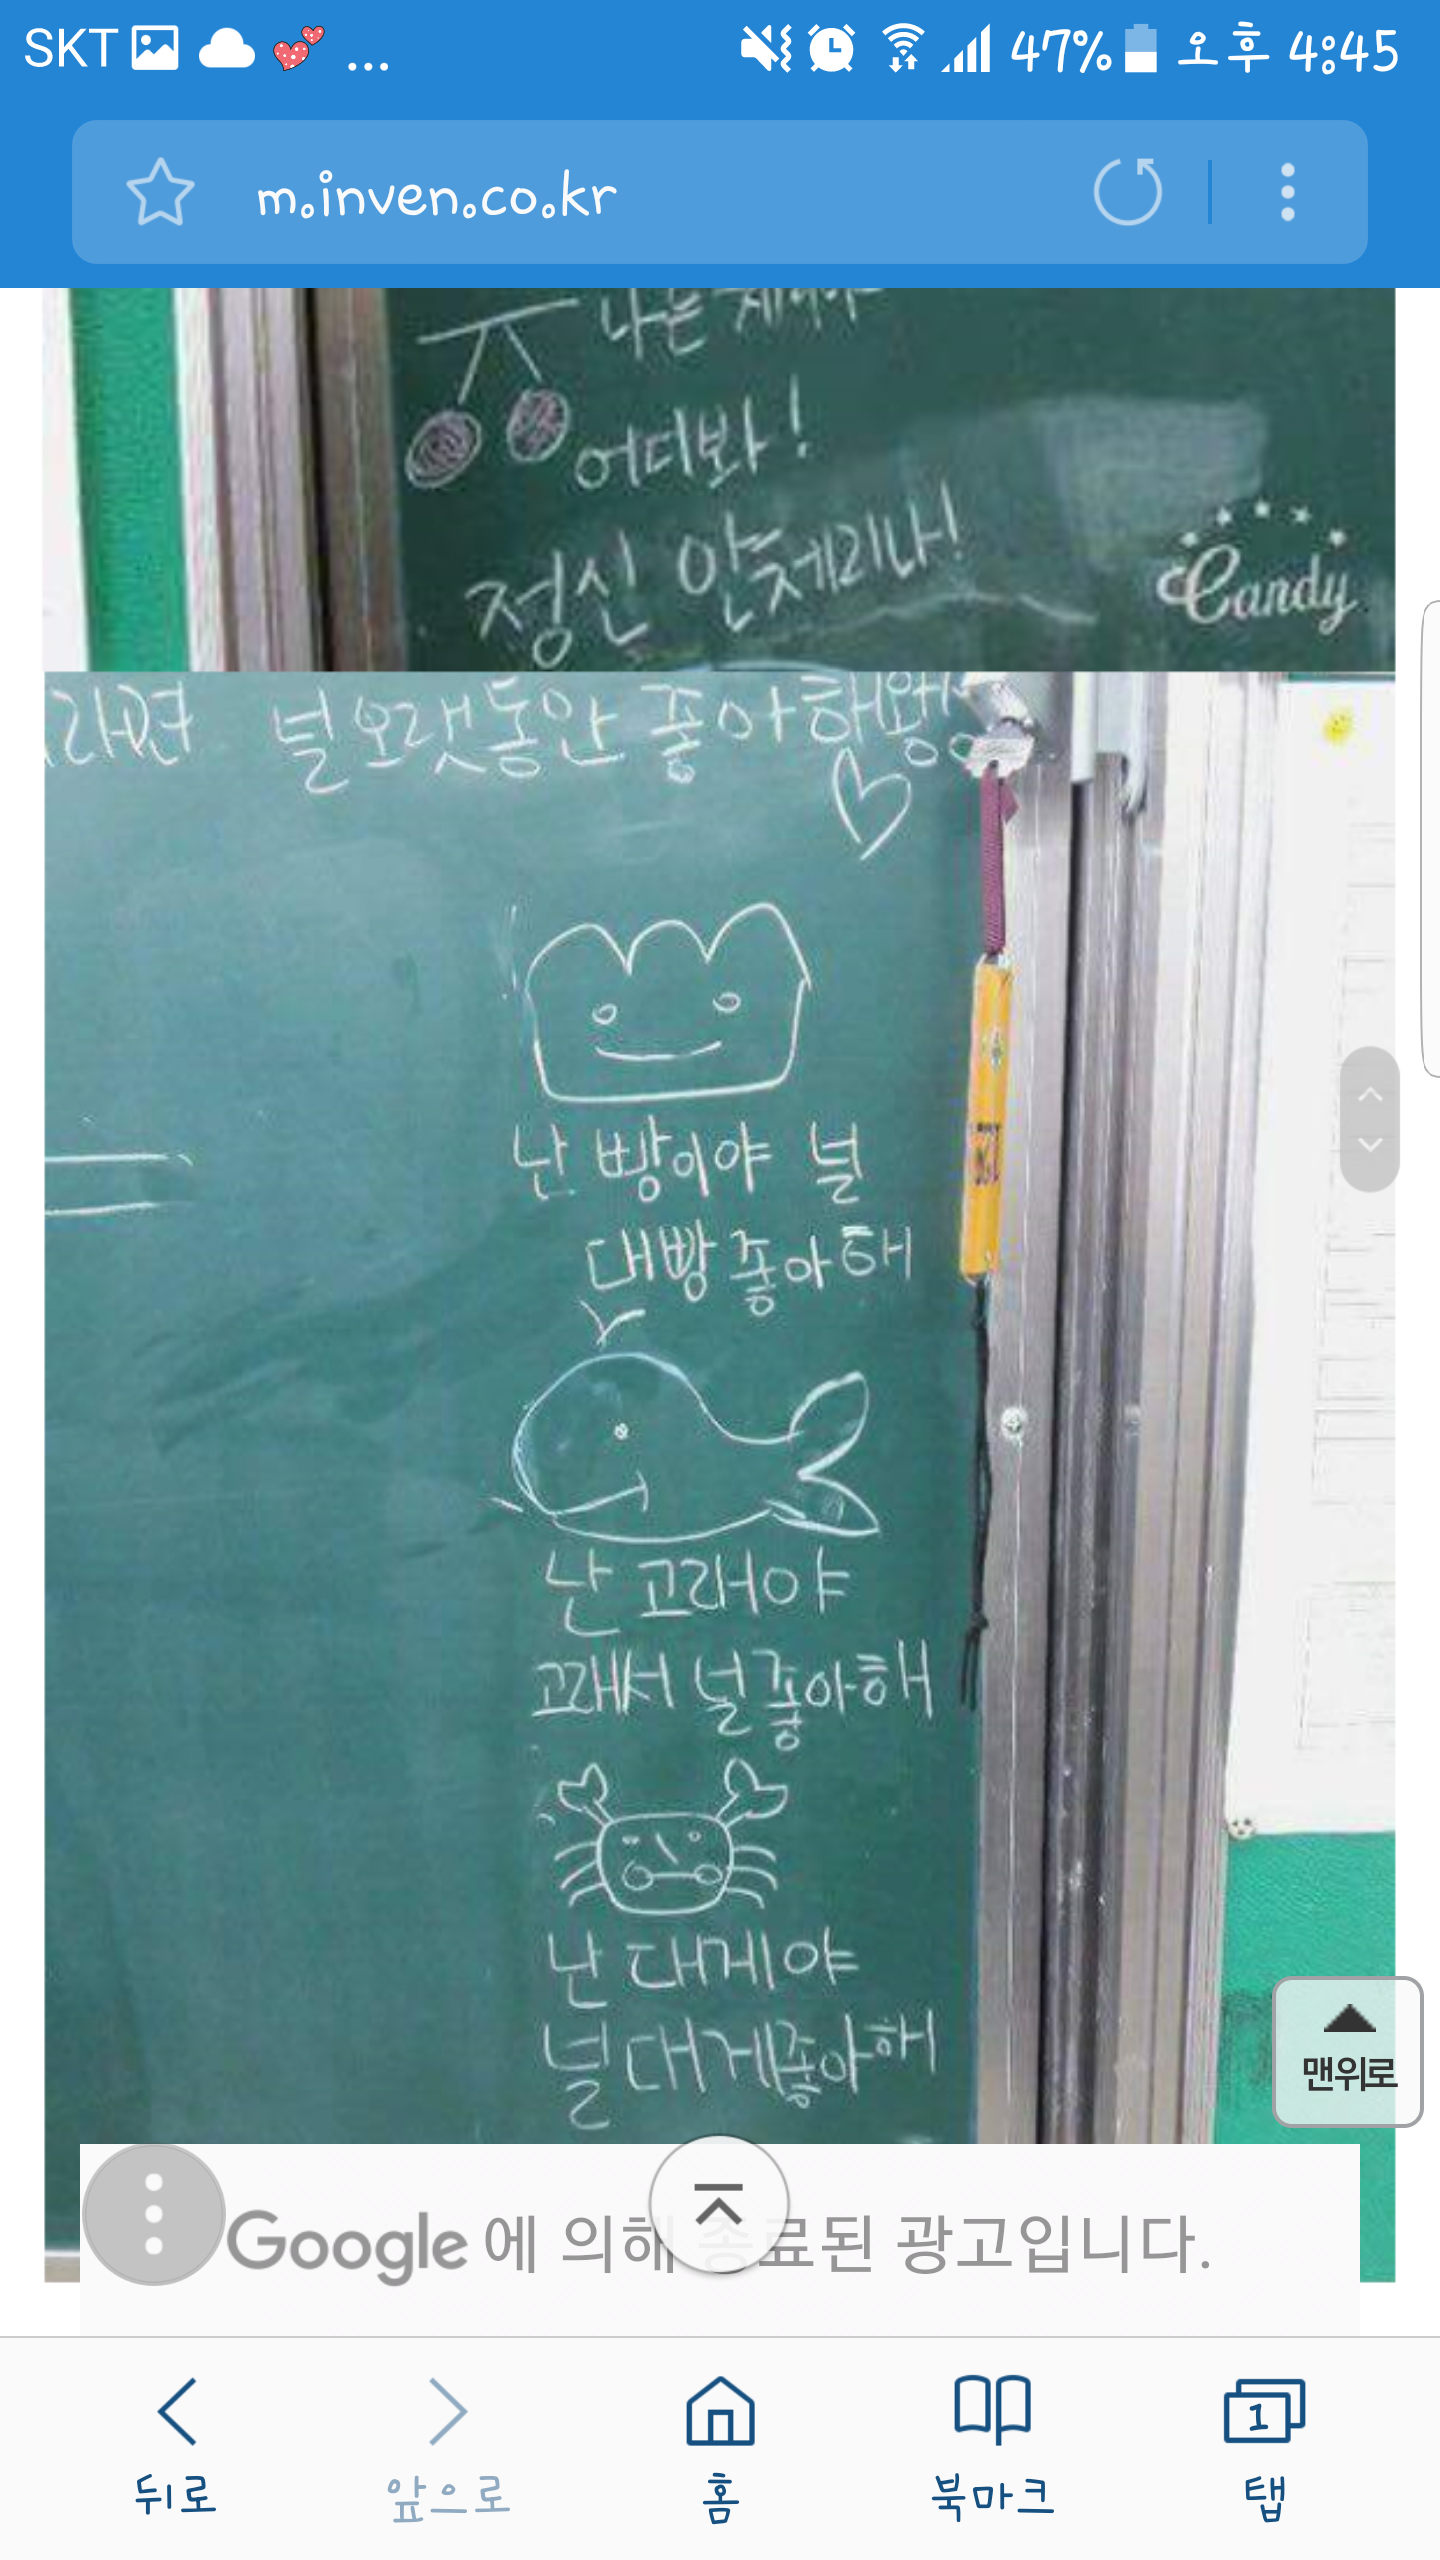 SKT ... 47% 오후 4:45
m.inven.co.kr
나는 체리야
어디봐!
정신 안체리나!
Candy
라면 널오랫동안 좋아해왕
난 빵이야 널
대빵좋아해
난 고래야
고래서 널좋아해
난 대게야
널대게좋아해
맨위로
Google 에 의해 종료된 광고입니다.
1
뒤로 앞으로 홈 북마크 탭